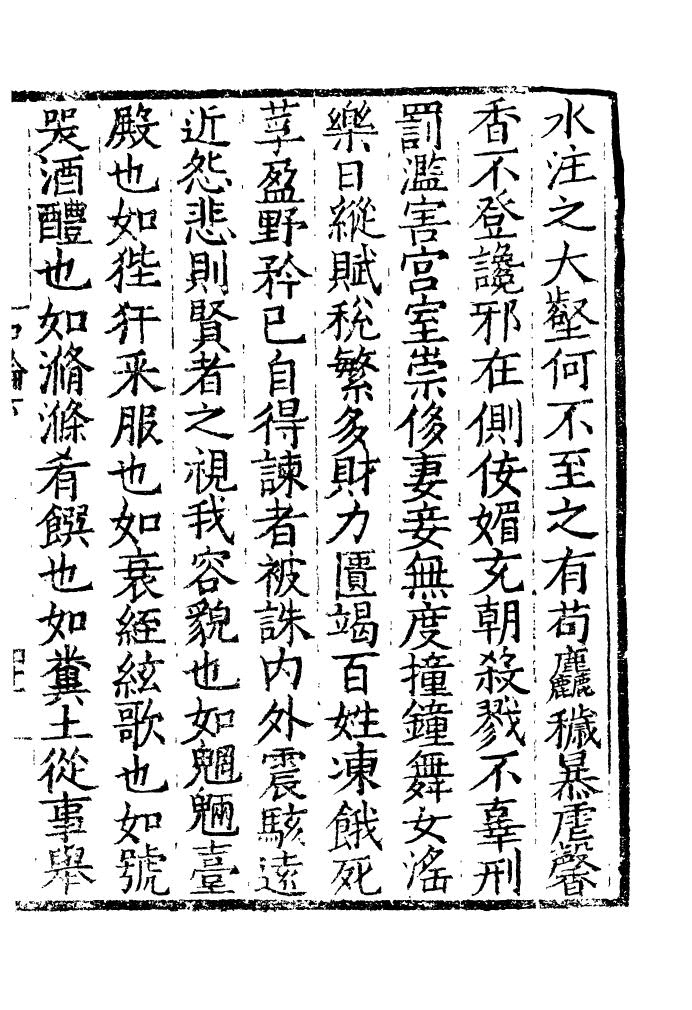 水注之大壑何不至之有苟麤穢暴虐馨
香不登讒邪在側佞媚充朝殺戮不辜刑
罰濫害宮室崇侈妻妾無度撞鐘舞女滛
樂日縱賦稅繁多財力匱竭百姓凍餓死
莩盈野矜已自得諫者被誅內外震駭遠
近怨悲則賢者之視我容貌也如魍魎臺
殿也如狴犴采服也如衰絰絃歌也如號
哭酒醴也如滫滌肴饌也如糞土從事舉